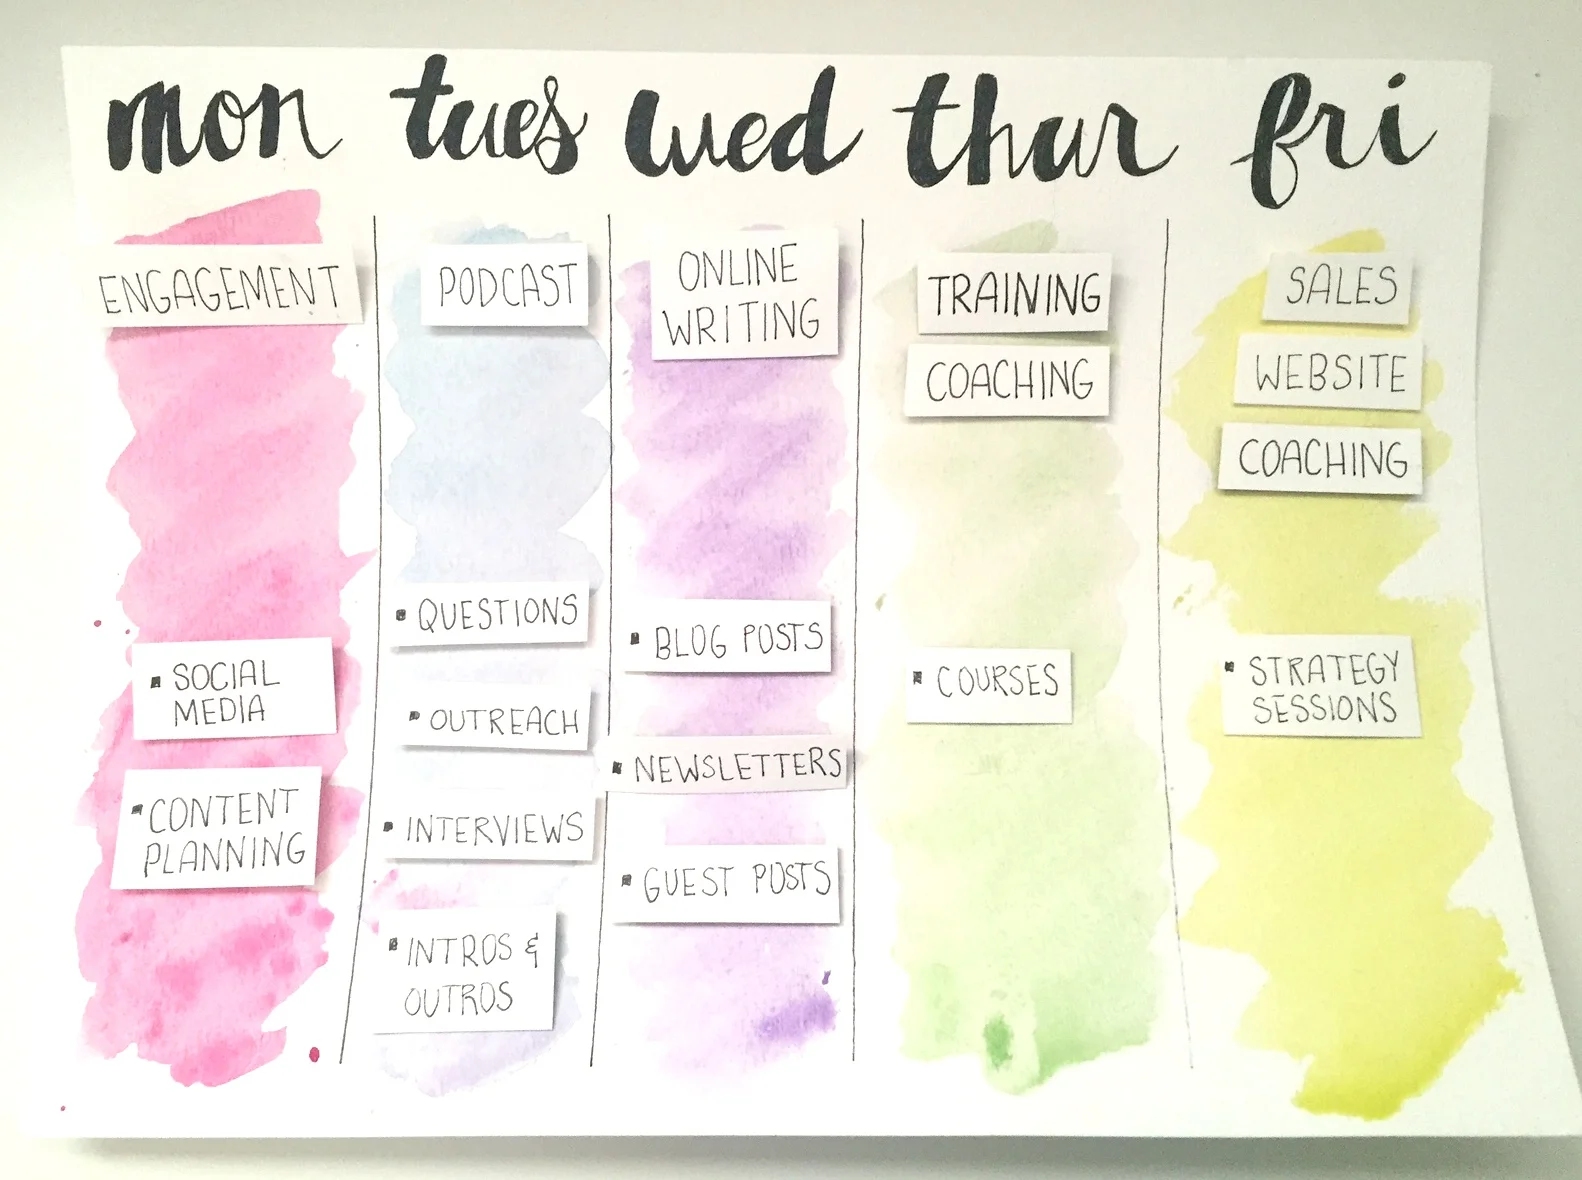 mon tues wed thur fri
ENGAGEMENT
▪ SOCIAL
MEDIA
▪ CONTENT
PLANNING
PODCAST
▪ QUESTIONS
▪ OUTREACH
▪ INTERVIEWS
▪ INTROS &
OUTROS
ONLINE
WRITING
▪ BLOG POSTS
▪ NEWSLETTERS
▪ GUEST POSTS
TRAINING
COACHING
▪ COURSES
SALES
WEBSITE
COACHING
▪ STRATEGY
SESSIONS